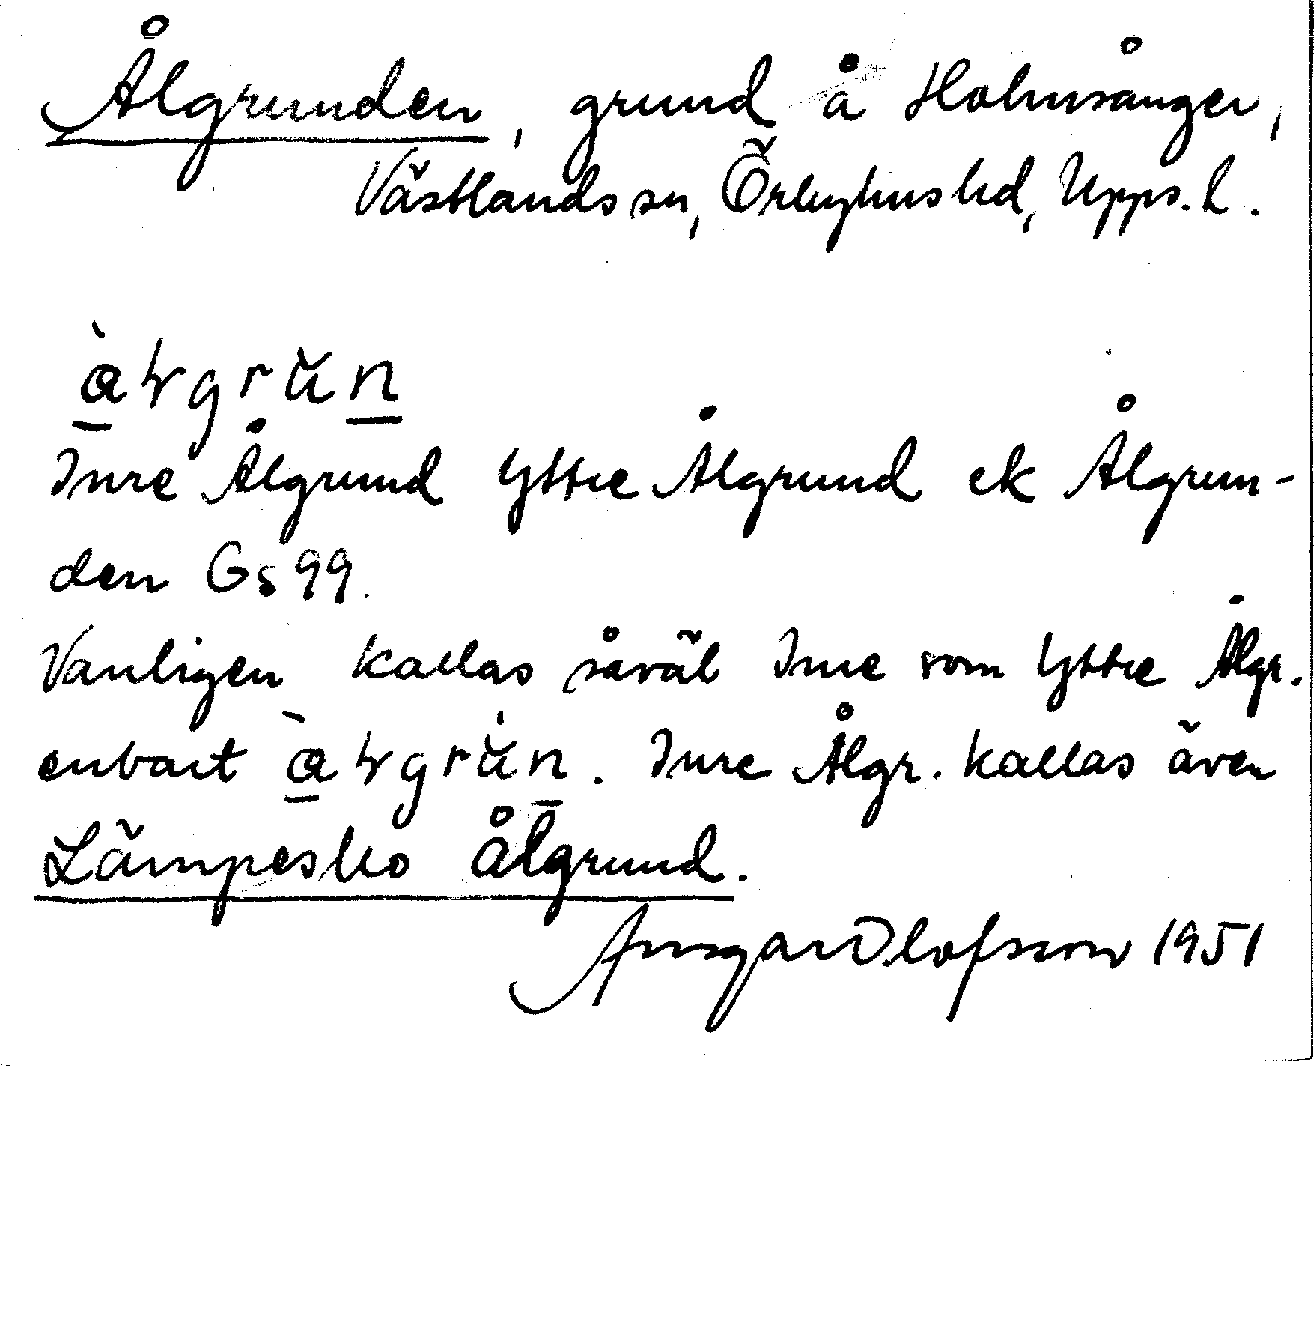 Ålgrunden, grund å Holmsånger,
Västlands sn, Örbyhus hd, Upps. l.
Inre Ålgrund Yttre Ålgrund ek Ålgrun-
den Gs 99.
Vanligen kallas såväl Inre som Yttre Ålgr.
enbart. Inre Ålgr. kallas även
Ålgrund.
Ansgar Olofsson 1951